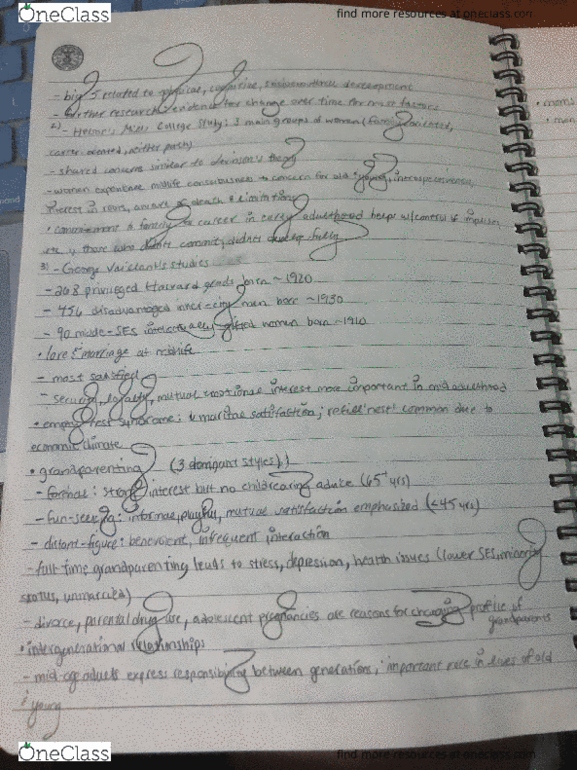 OneClass
find more resources at oneclass.com
- big 5 related to physical, cognitive, socioemotional development
- further research: evidence for change over time for most factors
2) - Helson's Mills College Study: 3 main groups of women (family oriented,
career oriented, neither path)
- shared concerns similar to Levinson's theory
- women experience midlife consciousness to concern for old & young, introspectiveness,
interest in roots, aware of death & limitations
• commitment to family or career in early adulthood helps w/control of impulses
those who didn't commit, didn't develop fully
3) - George Vaillant's studies
- 268 privileged Harvard grads born ~1920
- 456 disadvantaged inner city men born ~1930
- 90 middle-SES intellectually gifted women born ~1910
• love & marriage at midlife
- most satisfied
- security, loyalty, mutual emotional interest more important in mid adulthood
• empty nest syndrome: ↓ marital satisfaction; 'refilled nest' common due to
economic climate
• grandparenting (3 dominant styles)
- formal: strong interest but no childrearing advice (65+ yrs)
- fun-seeking: informal, playful, mutual satisfaction emphasized (<45 yrs)
- distant-figure: benevolent, infrequent interaction
- full-time grandparenting leads to stress, depression, health issues (lower SES, minority
status, unmarried)
- divorce, parental drug use, adolescent pregnancies are reasons for changing profile of
grandparents
• intergenerational relationships
- mid-age adults express responsibility between generations, important role in lives of old
& young
OneClass
find more resources at oneclass.com